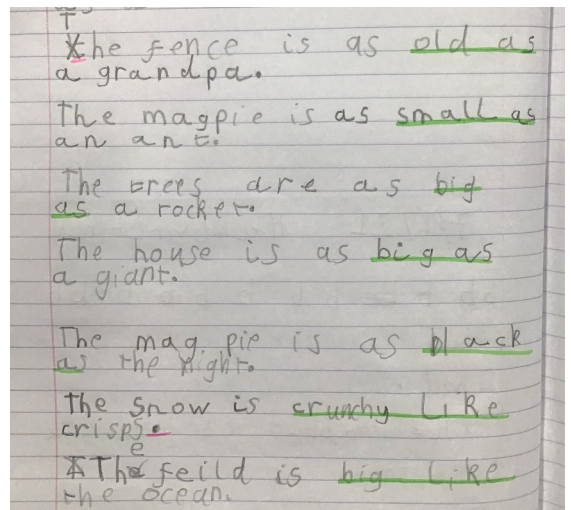 T
the fence is as old as
a grandpa.
The magpie is as small as
an ant.
The trees are as big
as a rocket.
The house is as big as
a giant.
The mag pie is as black
as the night.
The snow is crunchy like
crisps.
e
The feild is big like
the ocean.